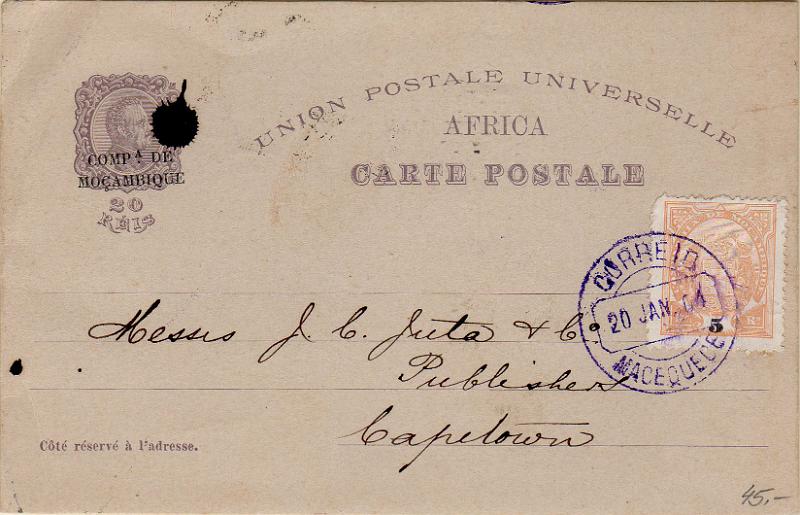 UNION POSTALE UNIVERSELLE
AFRICA
CARTE POSTALE
COMP.A DE
MOÇAMBIQUE
20
RÉIS
CORREIO
20 JAN. 04
MACEQUECE
5
Messrs J. C. Juta & Co.
Publishers
Capetown
Côté réservé à l'adresse.
45.-